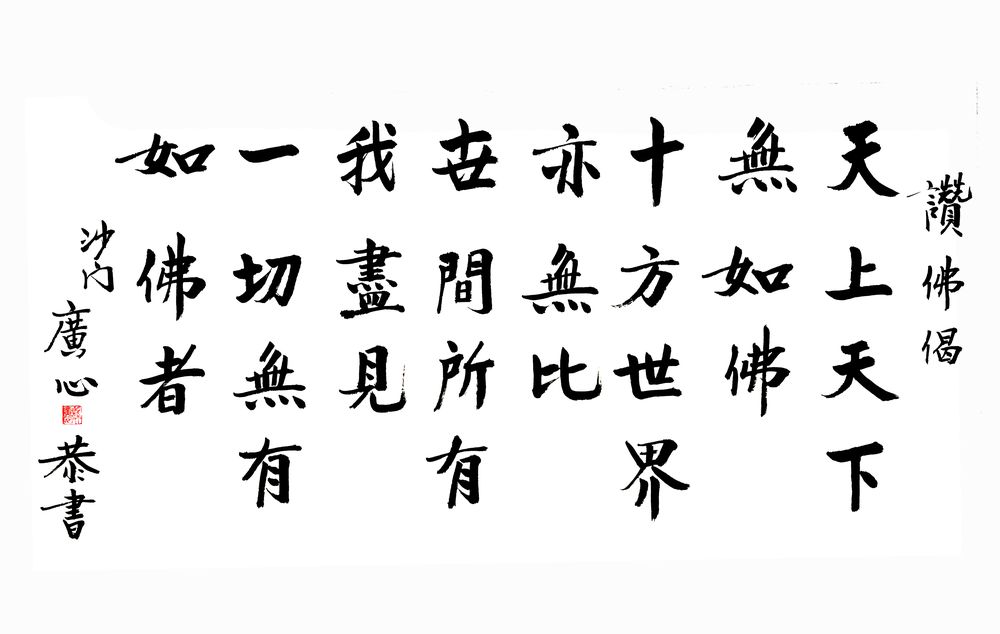 讚佛偈
天上天下
無如佛
十方世界
亦無比
世間所有
我盡見
一切無有
如佛者
沙门
廣心恭書